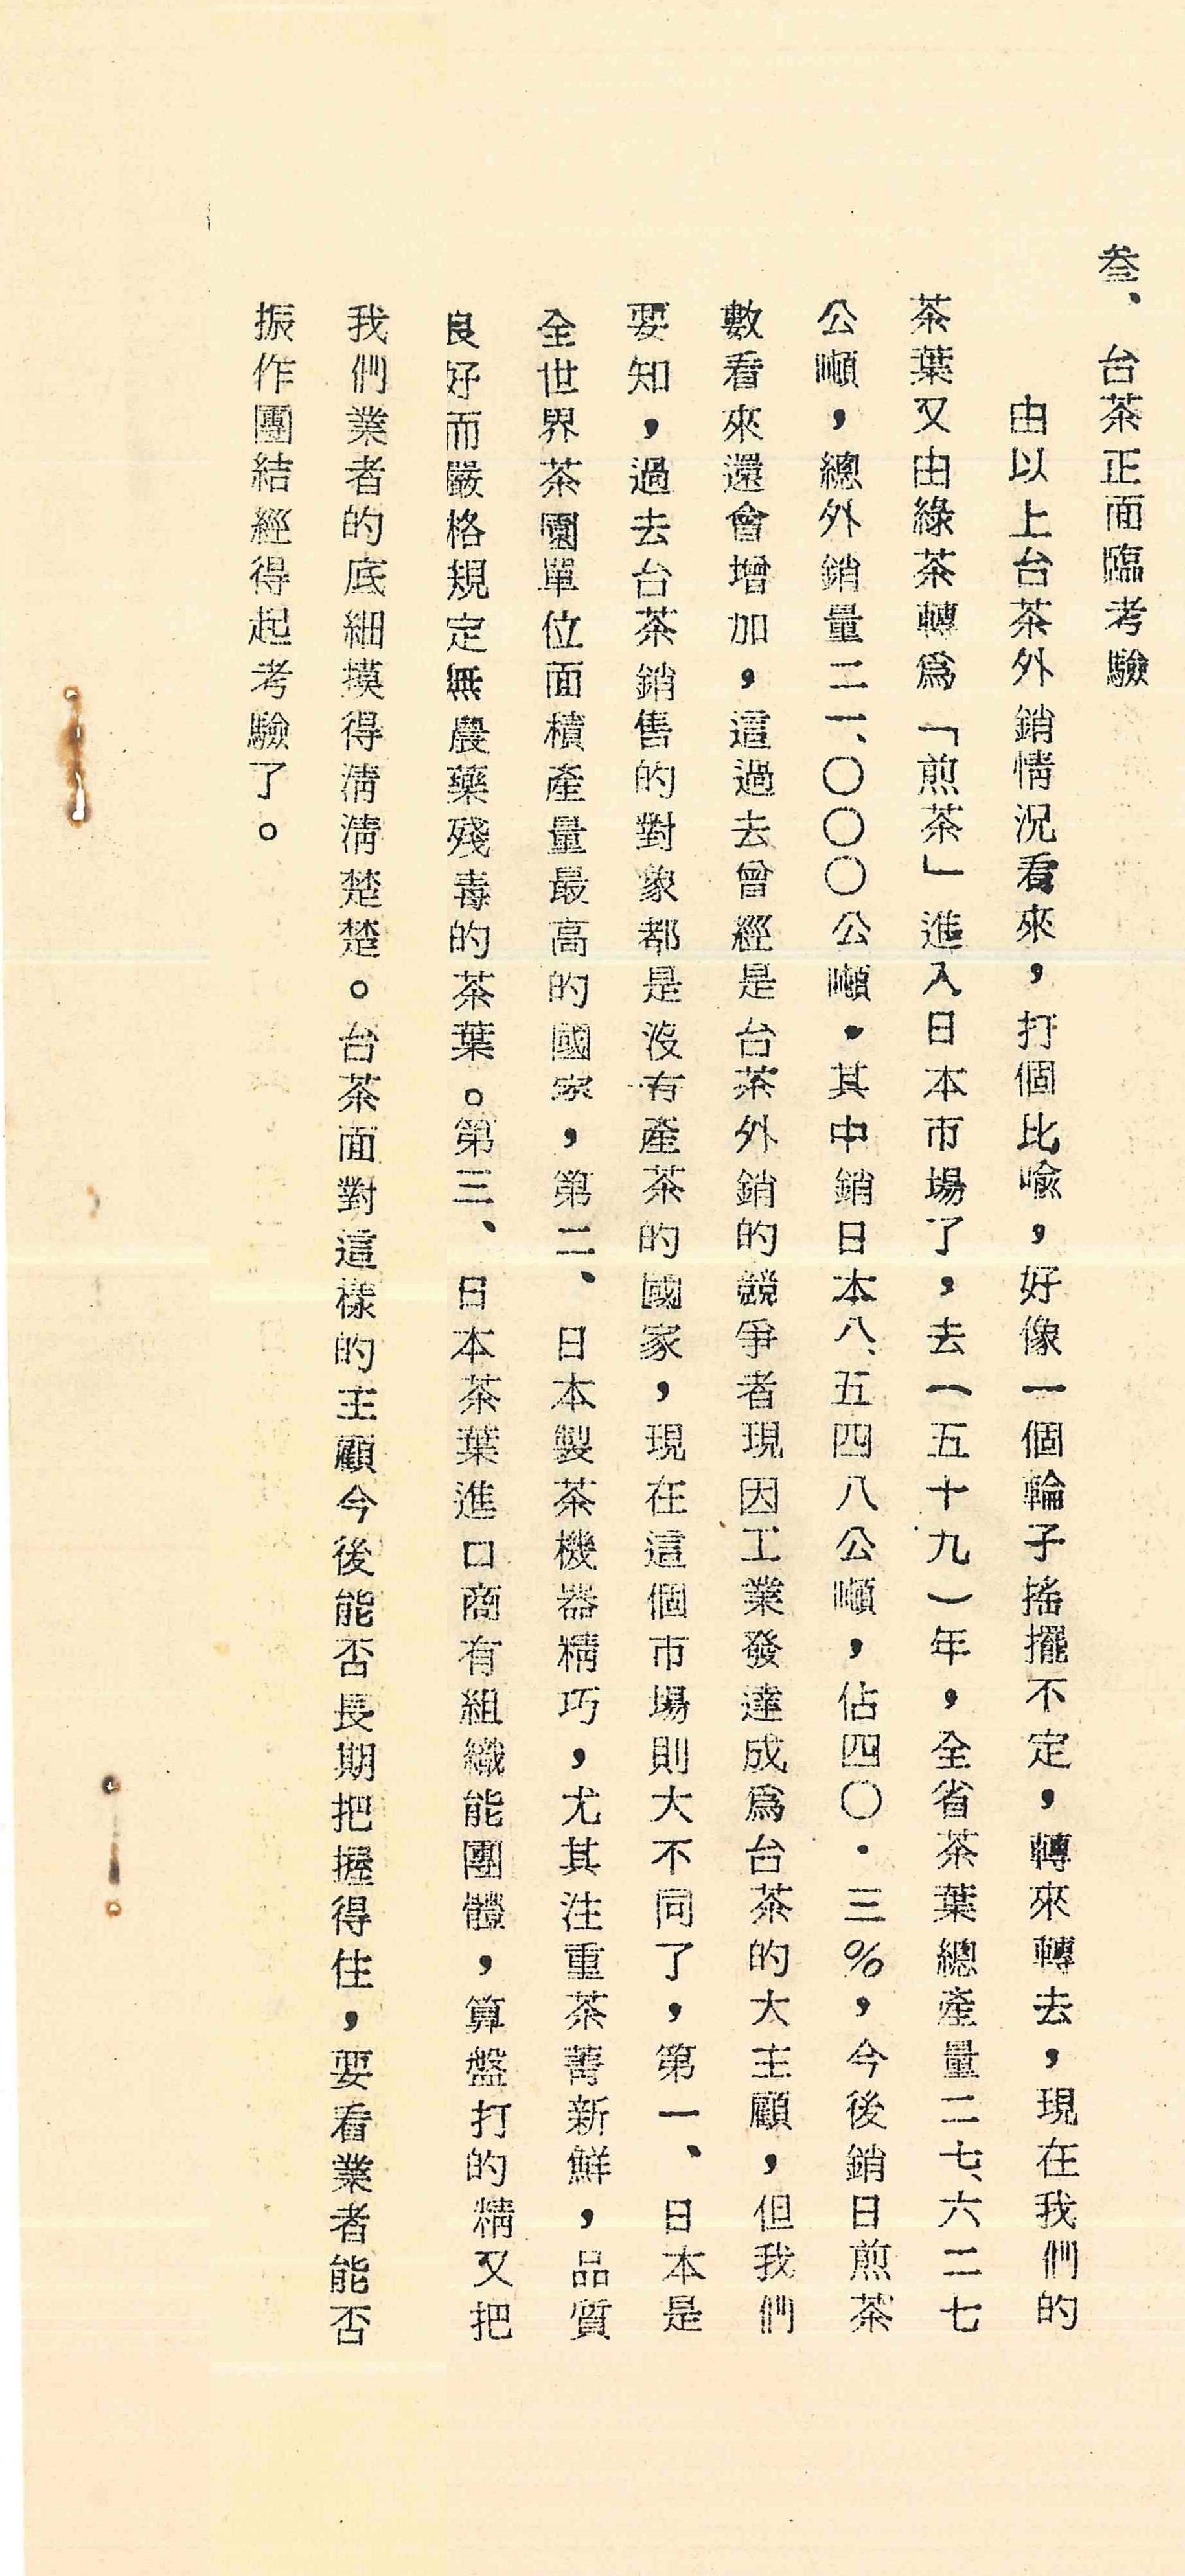 叁、台茶正面臨考驗
由以上台茶外銷情況看來，打個比喩，好像一個輪子搖擺不定，轉來轉去，現在我們的
茶葉又由綠茶轉爲「煎茶」進入日本市場了，去（五十九）年，全省茶葉總產量二七、六二七
公噸，總外銷量二一、〇〇〇公噸。其中銷日本八、五四八公噸，佔四〇・三％，今後銷日煎茶
數看來還會增加，這過去曾經是台茶外銷的競爭者現因工業發達成爲台茶的大主顧，但我們
要知，過去台茶銷售的對象都是沒有產茶的國家，現在這個市場則大不同了，第一、日本是
全世界茶園單位面積產量最高的國家，第二、日本製茶機器精巧，尤其注重茶菁新鮮，品質
良好而嚴格規定無農藥殘毒的茶葉。第三、日本茶葉進口商有組織能團體，算盤打的精又把
我們業者的底細摸得清清楚楚。台茶面對這樣的主顧今後能否長期把握得住，要看業者能否
振作團結經得起考驗了。